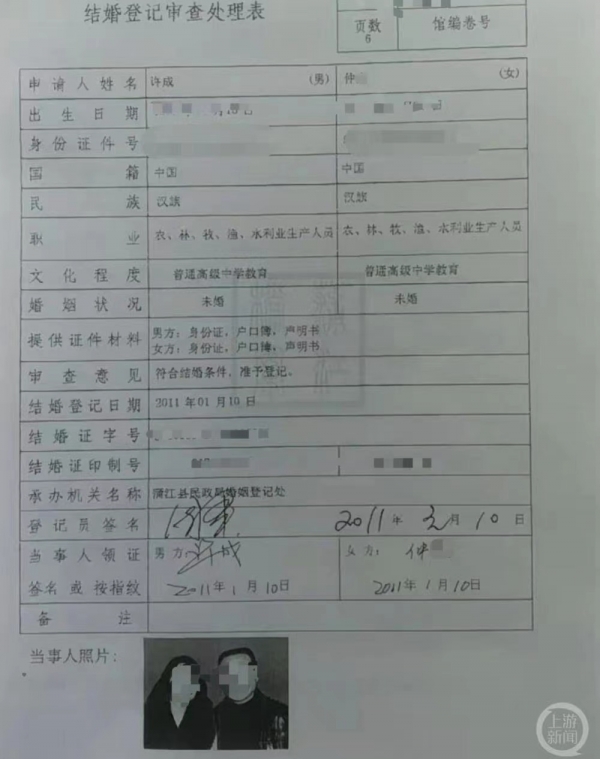 结婚登记审查处理表
页数 馆编卷号
6
申请人姓名 许成 (男) 仲 (女)
出生日期
身份证件号
国籍 中国 中国
民族 汉族 汉族
职业 农、林、牧、渔、水利业生产人员 农、林、牧、渔、水利业生产人员
文化程度 普通高级中学教育 普通高级中学教育
婚姻状况 未婚 未婚
提供证件材料 男方：身份证，户口簿，声明书
女方：身份证，户口簿，声明书
审查意见 符合结婚条件，准予登记。
结婚登记日期 2011年01月10日
结婚证字号
结婚证印制号
承办机关名称 蒲江县民政局婚姻登记处
登记员签名 2011年元月10日
当事人领证 男方：许成 女方：仲
签名或按指纹 2011年1月10日 2011年1月10日
备注
当事人照片：
上游新闻